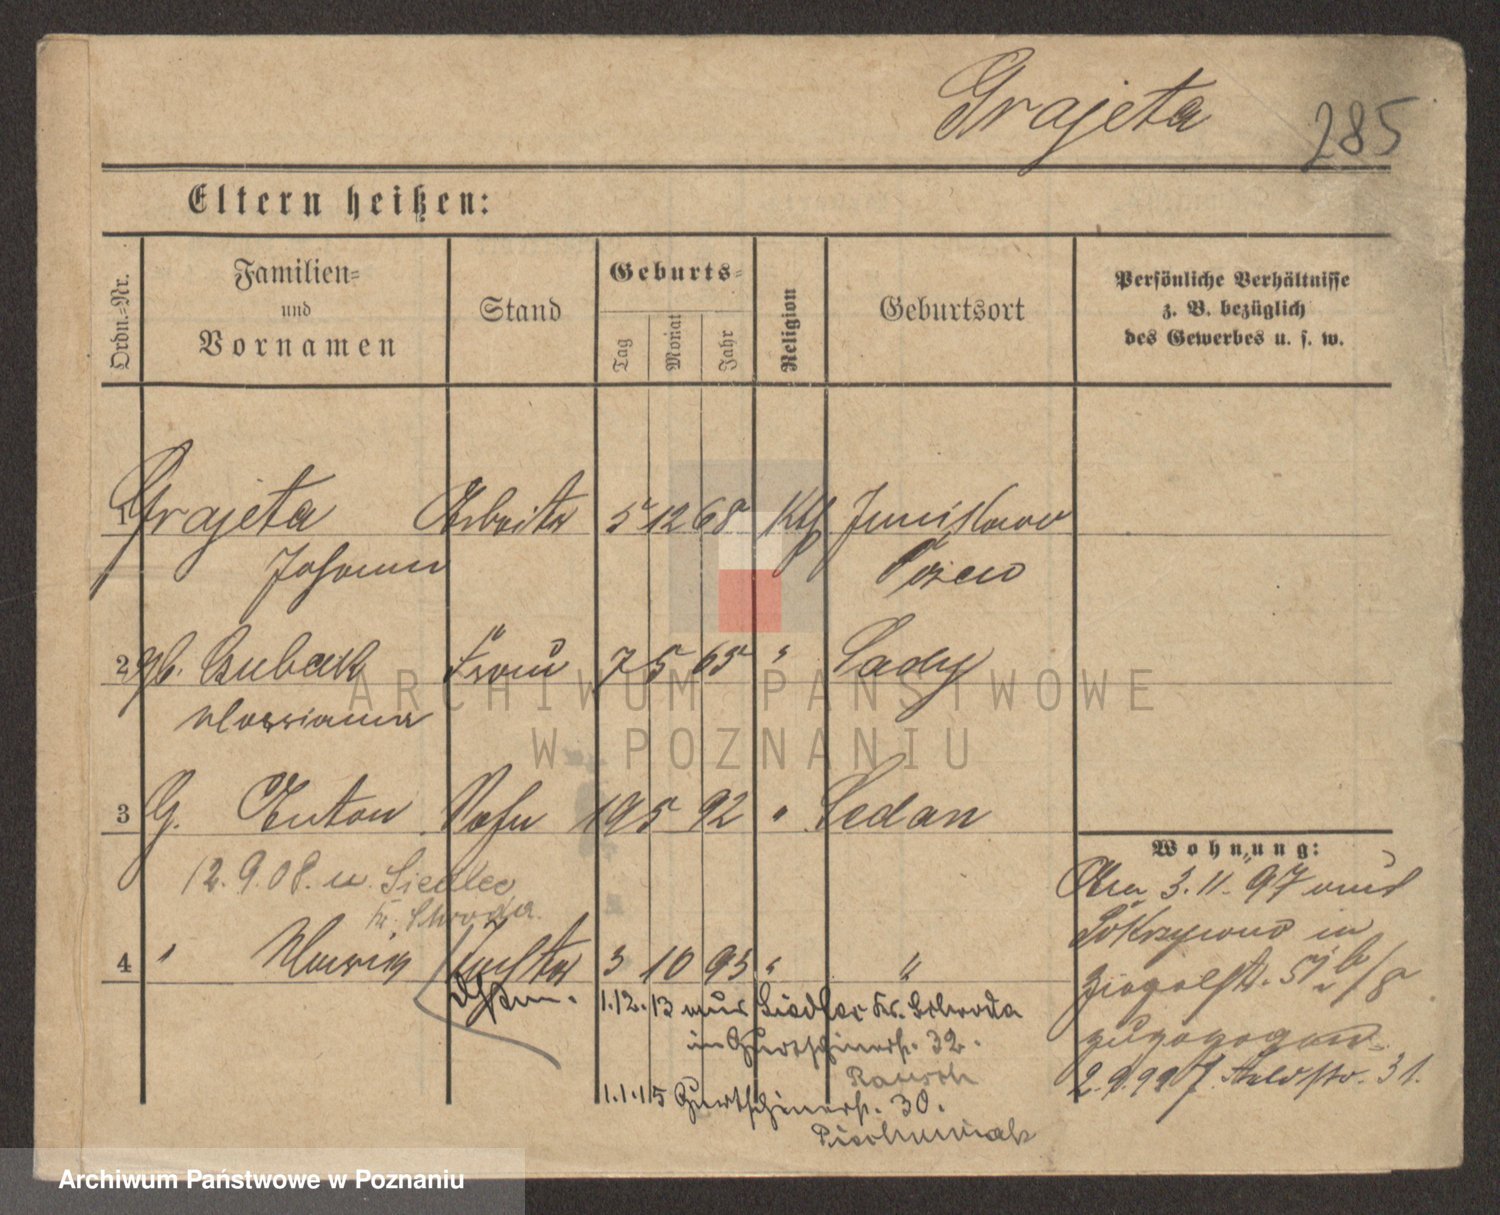 Grajeta
285
Eltern heißen:
Ordn.-Nr.
Familien-
und
Vornamen
Stand
Geburts-
Tag
Monat
Jahr
Religion
Geburtsort
Persönliche Verhältnisse
z. B. bezüglich
des Gewerbes u. s. w.
1 Grajeta Arbeiter 5 12 68 Kth
Johann Posen
2 gb. Frau 7 5 65 " Lady
Marianna
3 G. Anton Sohn 19 5 92 " Sedan
Wohnung:
12.9.08. n. Siedlec
Kr. Schroda
3.11.97 aus
in
4 " Maria Tochter 3 10 95 " "
1.12.13 aus Siedlec Kr. Schroda
in Gurtschinerstr. 32.
zugezogen
Rausch
2.9.99 Feldstr. 31.
1.1.15 Gurtschinerstr. 30.
ARCHIWUM PAŃSTWOWE
W POZNANIU
Archiwum Państwowe w Poznaniu